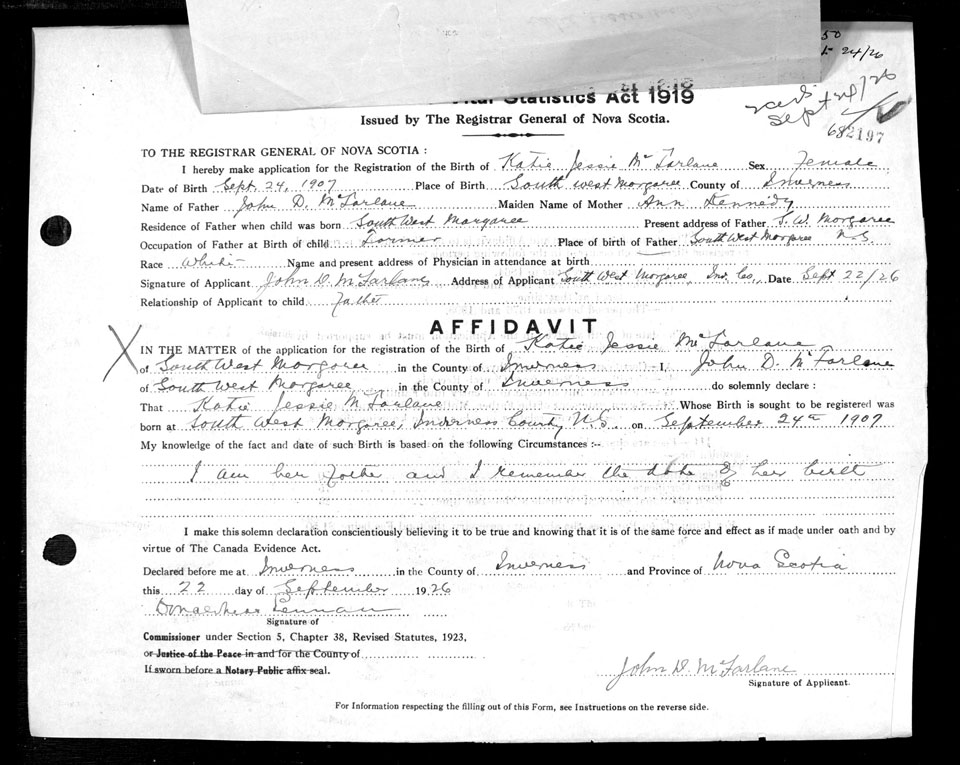 50
24/26
Vital Statistics Act 1919
Issued by The Registrar General of Nova Scotia.
Recd. Sept 24/26
682197
TO THE REGISTRAR GENERAL OF NOVA SCOTIA :
I hereby make application for the Registration of the Birth of Katie Jessie McFarlane Sex Female
Date of Birth Sept. 24, 1907 Place of Birth South west Margaree County of Inverness
Name of Father John D. McFarlane Maiden Name of Mother Ann Kennedy
Residence of Father when child was born South West Margaree Present address of Father S. W. Margaree
Occupation of Father at Birth of child Farmer Place of birth of Father South West Margaree N.S.
Race White Name and present address of Physician in attendance at birth
Signature of Applicant John D. McFarlane Address of Applicant South West Margaree, Inv. Co., Date Sept 22/26
Relationship of Applicant to child Father
AFFIDAVIT
X
IN THE MATTER of the application for the registration of Birth of Katie Jessie McFarlane
of South West Margaree in the County of Inverness I, John D. McFarlane
of South West Margaree in the County of Inverness do solemnly declare :
That Katie Jessie McFarlane Whose Birth is sought to be registered was
born at South West Margaree, Inverness County, N.S. on September 24th 1907
My knowledge of the fact and date of such Birth is based on the following Circumstances :—
I am her father and I remember the date of her birth
I make this solemn declaration conscientiously believing it to be true and knowing that it is of the same force and effect as if made under oath and by
virtue of The Canada Evidence Act.
Declared before me at Inverness in the County of Inverness and Province of Nova Scotia
this 22 day of September 1926
Donald Lennan
Signature of
Commissioner under Section 5, Chapter 38, Revised Statutes, 1923,
or Justice of the Peace in and for the County of
If sworn before a Notary Public affix seal.
John D. McFarlane
Signature of Applicant.
For Information respecting the filling out of this Form, see Instructions on the reverse side.